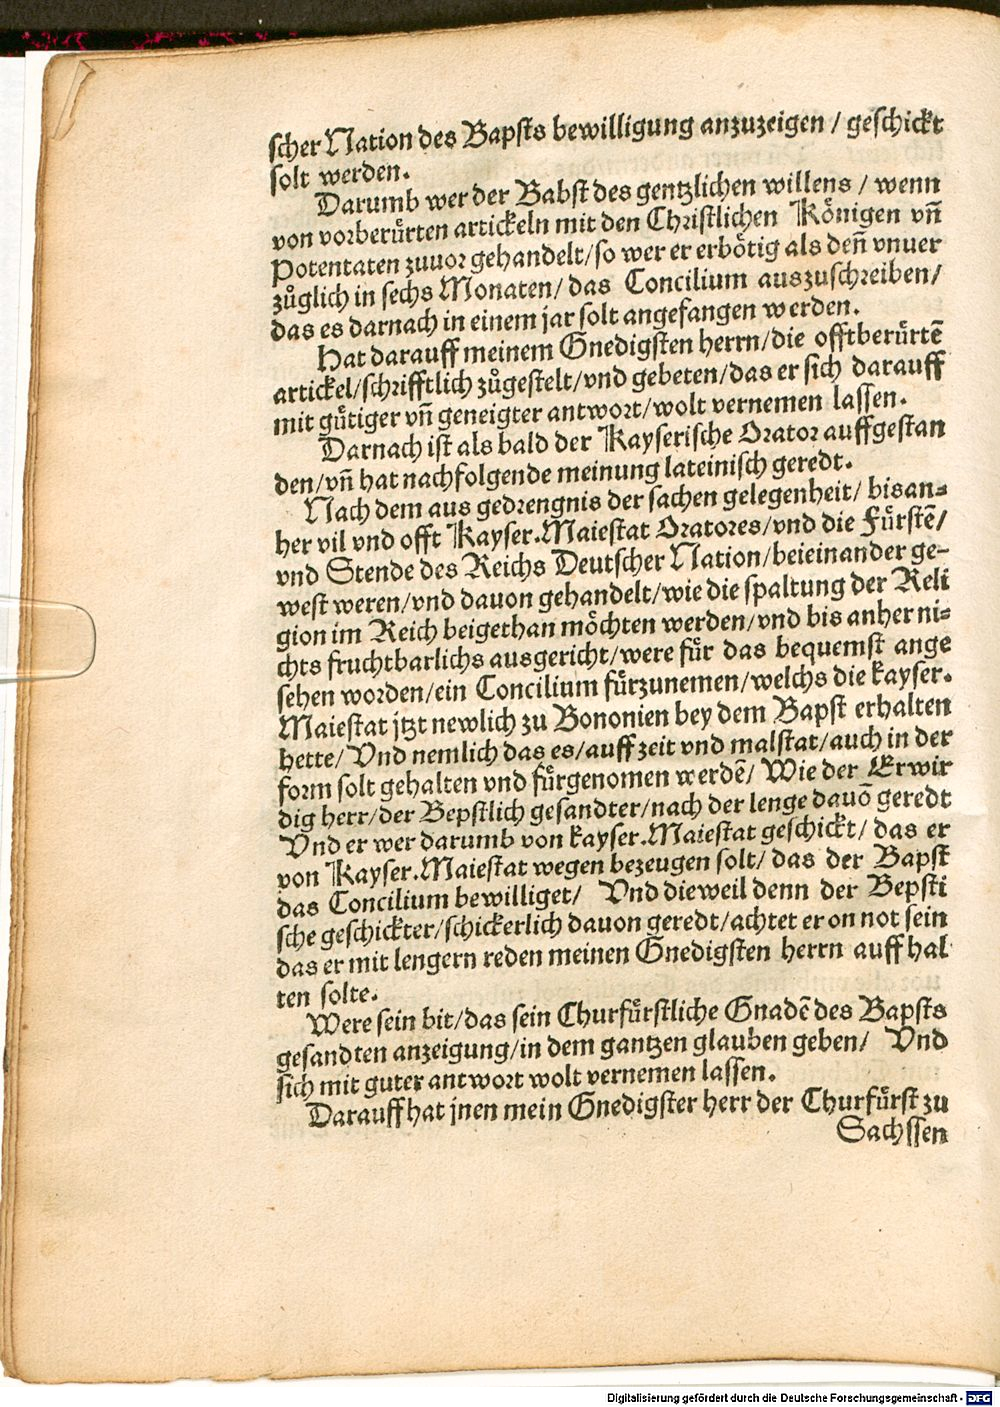 scher Nation des Bapsts bewilligung anzuzeigen / geschickt
solt werden.
Darumb wer der Babst des gentzlichen willens / wenn
von vorberuͤrten artickeln mit den Christlichen Koͤnigen vñ
Potentaten zuuor gehandelt/so wer er erboͤtig als deñ vnuer
zuͤglich in sechs Monaten/ das Concilium auszuschreiben/
das es darnach in einem jar solt angefangen werden.
Hat darauff meinem Gnedigsten herrn/die offtberuͤrtẽ
artickel/schrifftlich zuͤgestelt/vnd gebeten/das er sich darauff
mit guͤtiger vñ geneigter antwort/wolt vernemen lassen.
Darnach ist als bald der Kayserische Orator auffgestan
den/vñ hat nachfolgende meinung lateinisch geredt.
Nach dem aus gedrengnis der sachen gelegenheit/ bisan⸗
her vil vnd offt Kayser.Maiestat Oratores/vnd die Fuͤrstẽ/
vnd Stende des Reichs Deutscher Nation/beieinander ge⸗
west weren/vnd dauon gehandelt/wie die spaltung der Reli
gion im Reich beigethan moͤchten werden/vnd bis anher ni⸗
chts fruchtbarlichs ausgericht/were fuͤr das bequemst ange
sehen worden/ein Concilium fuͤrzunemen/welchs die kayser.
Maiestat jtzt newlich zu Bononien bey dem Bapst erhalten
hette/ Vnd nemlich das es/auff zeit vnd malstat/auch in der
form solt gehalten vnd fuͤrgenomen werdẽ/ Wie der Erwir
dig herr/der Bepstlich gesandter/nach der lenge dauõ geredt
Vnd er wer darumb von kayser.Maiestat geschickt/ das er
von Kayser.Maiestat wegen bezeugen solt/ das der Bapst
das Concilium bewilliget/ Vnd dieweil denn der Bepsti
sche geschickter/schickerlich dauon geredt/achtet er on not sein
das er mit lengern reden meinen Gnedigsten herrn auff hal
ten solte.
Were sein bit/das sein Churfuͤrstliche Gnadẽ des Bapsts
gesandten anzeigung/in dem gantzen glauben geben/ Vnd
sich mit guter antwort wolt vernemen lassen.
Darauff hat jnen mein Gnedigster herr der Churfuͤrst zu
Sachssen
Digitalisierung gefördert durch die Deutsche Forschungsgemeinschaft - DFG